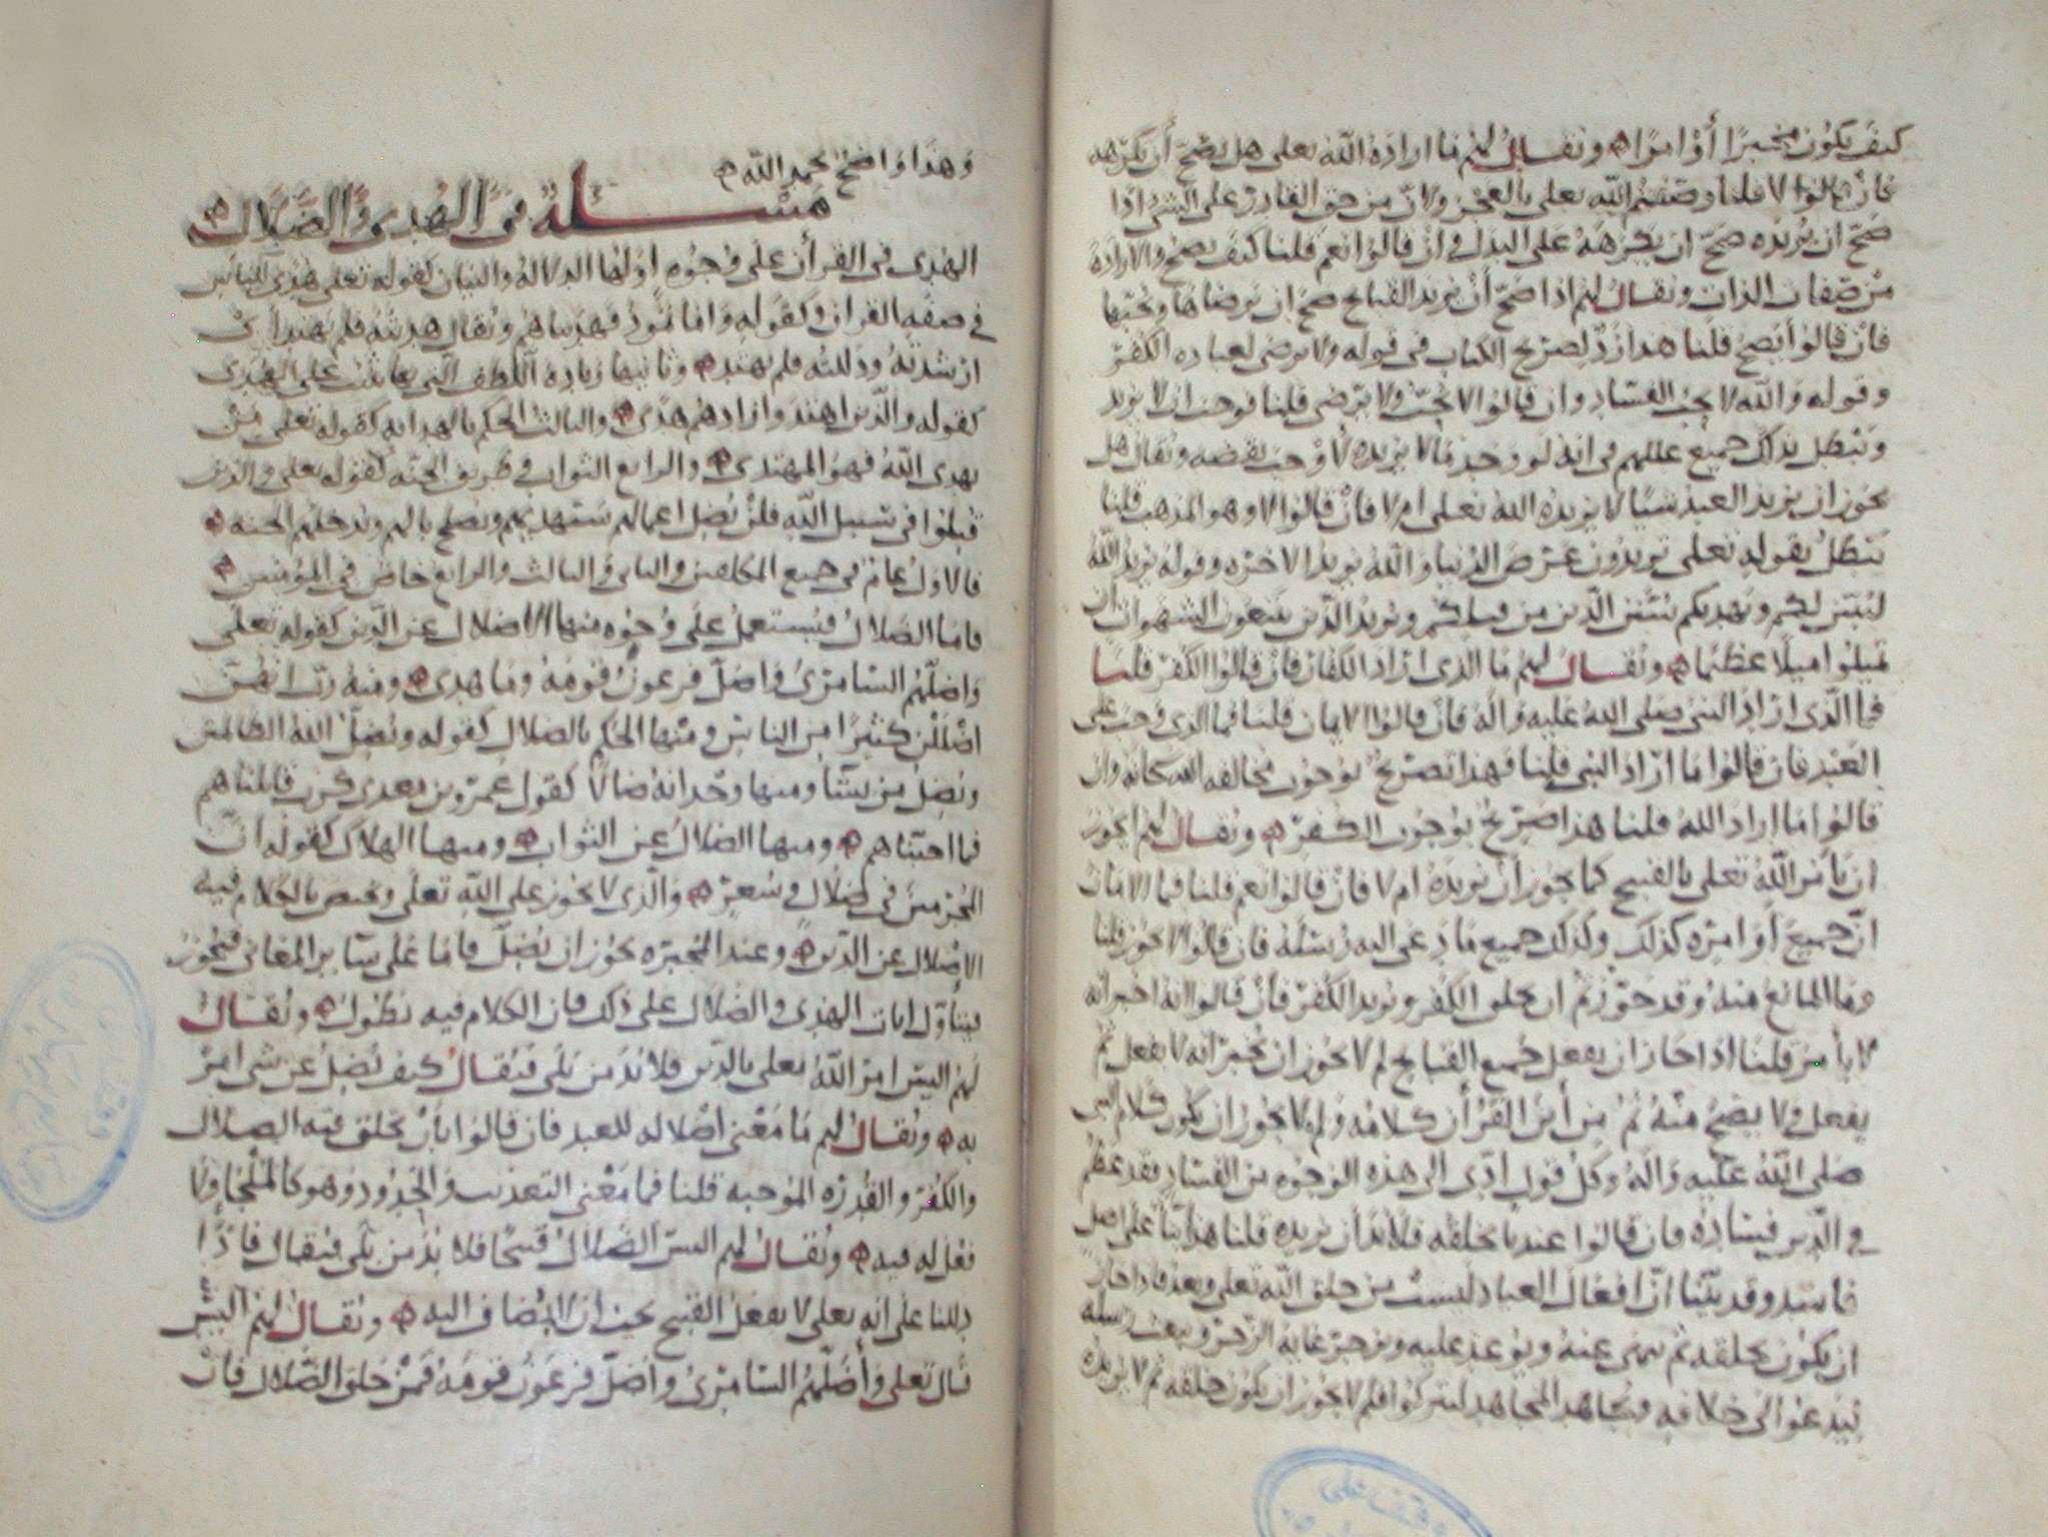 كيف يكون مخبرًا أو امرًا ويقال لهم ما اراده الله تعلى هل يصح أن يكرهه
فان قالوا لا قلنا وصفتم الله تعلى بالعجز ولان من حق القادر على الشئ اذا
صح ان يريده صح ان يكرهه على البدل وان قالوا نعم قلنا كيف يصح والارادة
من صفات الذات ويقال لهم اذا صح أن يريد القبايح صح ان يرضاها ويحبها
فان قالوا يصح قلنا هذا رد لصريح الكتاب في قوله ولا يرضى لعباده الكفر
وقوله والله لا يحب الفساد وان قالوا لا يحب ولا يرضى قلنا فوجب ان لا يريد
وتبطل بذلك جميع عللهم في انه لو وجد ما لا يريده لاوجب نقصه ويقال هل
يجوز ان يريد العبد شيًا لا يريده الله تعلى ام لا فان قالوا لا وهو المذهب قلنا
يبطل بقوله تعلى تريدون عرض الدنيا والله يريد الاخره وقوله يريد الله
ليبين لكم ويهديكم سنن الذين من قبلكم ويريد الذين يتبعون الشهوات ان
تميلوا ميلا عظيما ويقال لهم ما الذى اراد الكفار فان قالوا الكفر قلنا
فما الذى اراد النبى صلى الله عليه واله فان قالوا الايمان قلنا فما الذى وجب على
العبد فان قالوا ما اراد النبى قلنا فهذا تصريح بوجوب مخالفه الله سبحانه وان
قالوا ما اراد الله قلنا هذا صريح بوجوب الكفر ويقال لهم ايجوز
ان يأمر الله تعلى بالقبيح كما يجوز ان يريده ام لا فان قالوا نعم قلنا فما الامان
ان جميع أوامره كذلك وكذلك جميع ما دعى اليه رسله فان قالوا لا يجوز قلنا
وما المانع منه وقد جوزتم ان يخلق الكفر ويريد الكفر فان قالوا انه اخبر انه
لا يأمر قلنا اذا جاز ان يفعل جميع القبايح لم لا يجوز ان يخبر انه لا يفعل ثم
يفعل ولا يصح منه ثم من أين القرأن كلامه ولم لا يجوز ان يكون كلام النبى
صلى الله عليه واله وكل قول ادى الى هذه الوجوه من الفساد فقد عظم
في الدين فساده فان قالوا عندنا يخلقه فلا بد أن يريده قلنا هذا بناء على اصل
فاسد وقد بينا ان افعال العباد ليست من خلق الله تعلى وبعد فاذا جاز
ان يكون يخلقه ثم ينهى عنه ويوعد عليه ويزجر غاية الزجر ويبعث رسله
ليدعوا الى خلافه ويجاهد المجاهد ليتركوا فلم لا يجوز ان يكون خلقه ثم لا يريده
وهذا واضح بحمد الله
مسئلة في الهدى والضلال
الهدى في القرأن على وجوه اولها الدلاله والبيان كقوله تعلى هدى للناس
في صفه القران وكقوله واما ثمود فهديناهم ويقال هديته فلم يهتد أي
ارشدته ودللته فلم يهتد وثانيها زياده اللطف التى بها يثبت على الهدى
كقوله والذين اهتدوا زادهم هدى والثالث الحكم بالهدايه كقوله تعلى من
يهدى الله فهو المهتدى والرابع الثواب في طريق الجنه كقوله تعلى والذين
قتلوا في سبيل الله فلن يضل اعمالهم سيهديهم ويصلح بالهم ويدخلهم الجنه
فالاول عام في جميع المكلفين والثانى والثالث والرابع خاص في المؤمنين
فاما الضلال فيستعمل على وجوه منها الاضلال عن الدين كقوله تعلى
واضلهم السامرى واضل فرعون قومه وما هدى ومنه رب انهن
اضللن كثيرًا من الناس ومنها الحكم بالضلال كقوله ويضل الله الظالمين
ويضل من يشا ومنها وجدانه ضالا كقول عمرو بن معدى كرب قاتلناهم
فما اجبناهم ومنها الضلال عن الثواب ومنها الهلاك كقوله ان
المجرمين في ضلال وسعر والذى لا يجوز على الله تعلى ويختص بالكلام فيه
الاضلال عن الدين وعند المجبره يجوز ان يضل فاما على ساير المعانى فيجوز
ويتأول ايات الهدى والضلال على ذلك فان الكلام فيه يطول ويقال
لهم اليس امر الله تعلى بالدين فلا بد من بلى فيقال كيف يضل عن شى امر
به ويقال لهم ما معنى اضلاله للعبد فان قالوا بأن يخلق فيه الضلال
والكفر والقدره الموجبه قلنا فما معنى التعذيب والحدود وهو كالملجا ولا
فعل له فيه ويقال لهم اليس الضلال قبيحا فلا بد من بلى فيقال فاذا
دللنا على انه تعلى لا يفعل القبيح يجب ان لا يضاف اليه ويقال لهم اليس
قال تعلى وأضلهم السامرى واضل فرعون قومه فمن خلق الضلال فان